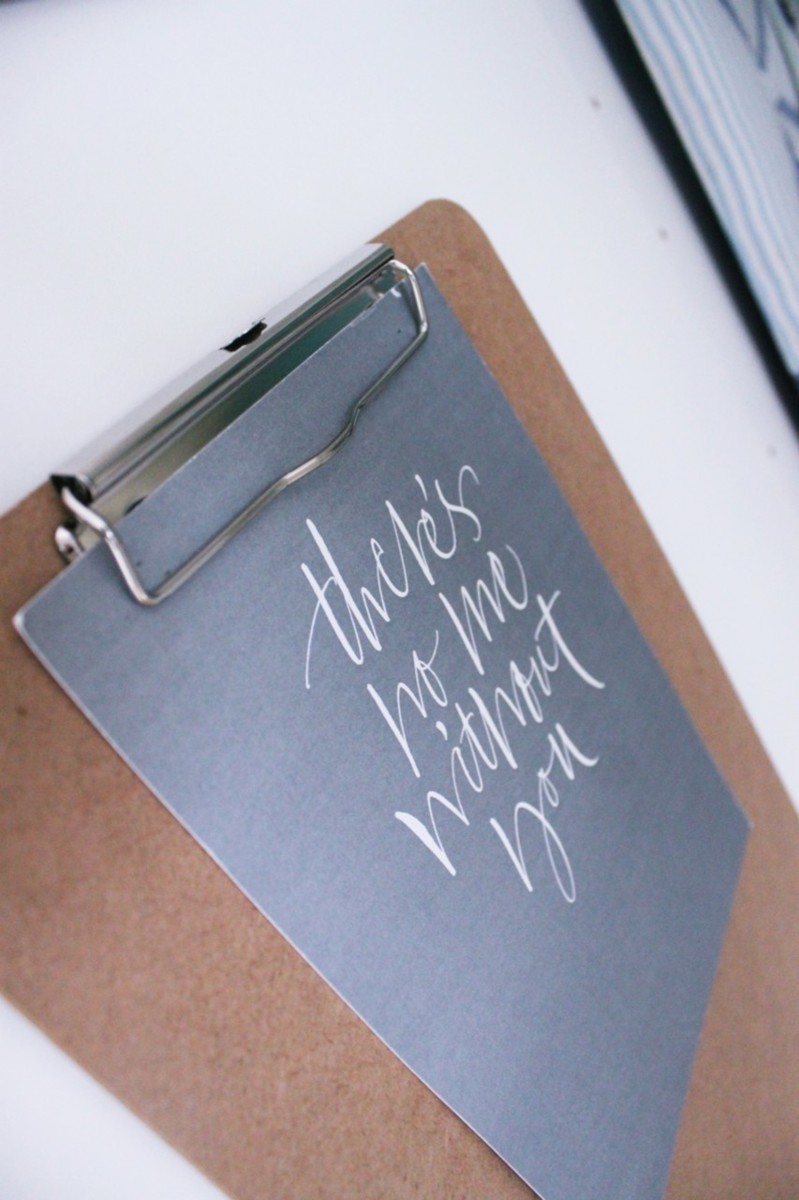 there's
no me
without
you